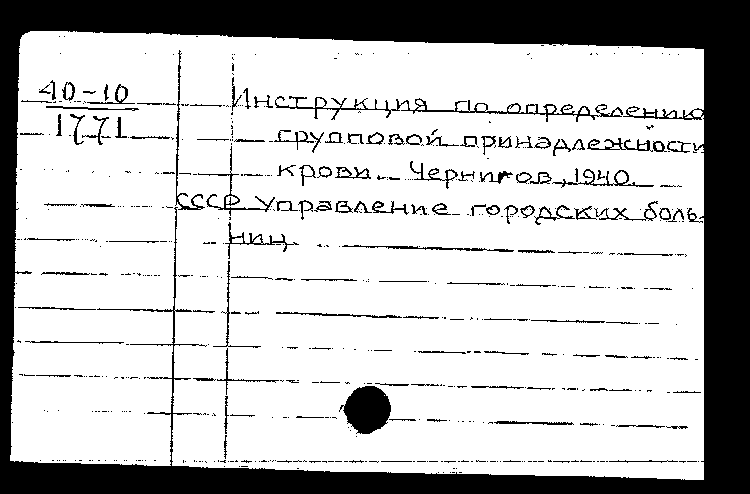 40-10
1771
Инструкция по определению
групповой принадлежности
крови. Чернигов, 1940.
СССР Управление городских боль-
ниц